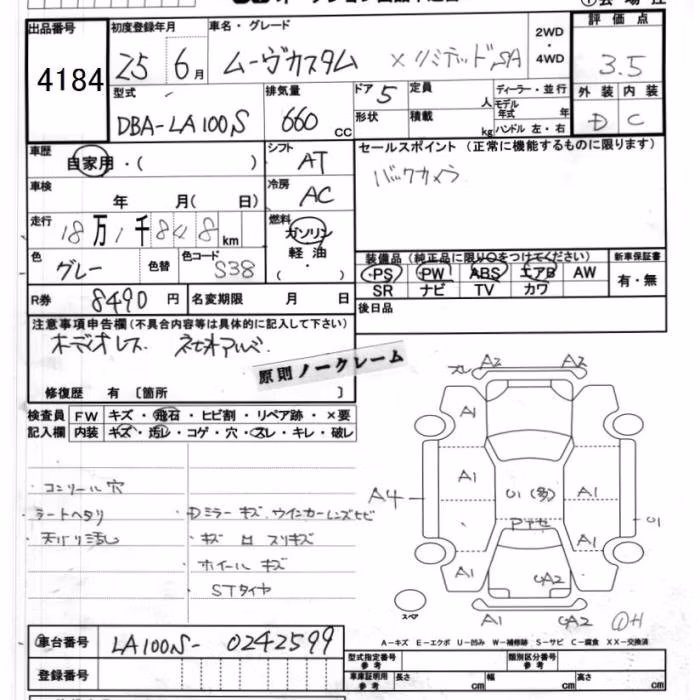 出品番号
4184
初度登録年月
25 6月
車名・グレード
ムーヴカスタム X リミテッド,SA
2WD
・
4WD
評価点
3.5
型式
DBA-LA100S
排気量
660 CC
ドア 5
定員 人
形状
積載 kg
ディーラー・並行
モデル
年式 年
ハンドル 左・右
外装 内装
D C
車歴
自家用・( )
シフト
AT
セールスポイント (正常に機能するものに限ります)
バックカメラ
車検
年 月( 日)
冷房
AC
走行
18万1千848km
燃料
ガソリン
軽油
( ・ )
色
グレー
色替
色コード
S38
装備品 (純正品に限り○をつけてください)
PS PW ABS エアB AW
SR ナビ TV カワ
新車保証書
有・無
R券 8490円
名変期限 月 日
後日品
注意事項申告欄(不具合内容等は具体的に記入して下さい)
オーディオレス
原則ノークレーム
修復歴 有 〔箇所 〕
検査員
記入欄
FW キズ・飛石・ヒビ割・リペア跡・×要
内装 キズ・汚レ・コゲ・穴・スレ・キレ・破レ
コンソール穴
シートヘタリ
天バリ汚レ
Dミラーキズ.ウインカーレンズヒビ
キズ 凹 スリキズ
ホイールキズ
STタイヤ
ズレ A2 A2
A1
A1
A1
A1
A1
A1
A4
U1(多)
U1
UA2
A1
UA2
スペア
A-キズ E-エクボ U-凹み W-補修跡 S-サビ C-腐食 XX-交換済
車台番号
LA100S-0242599
登録番号
型式指定番号
参考
類別区分番号
参考
車庫証明用
参考
長さ cm
幅 cm
高さ cm